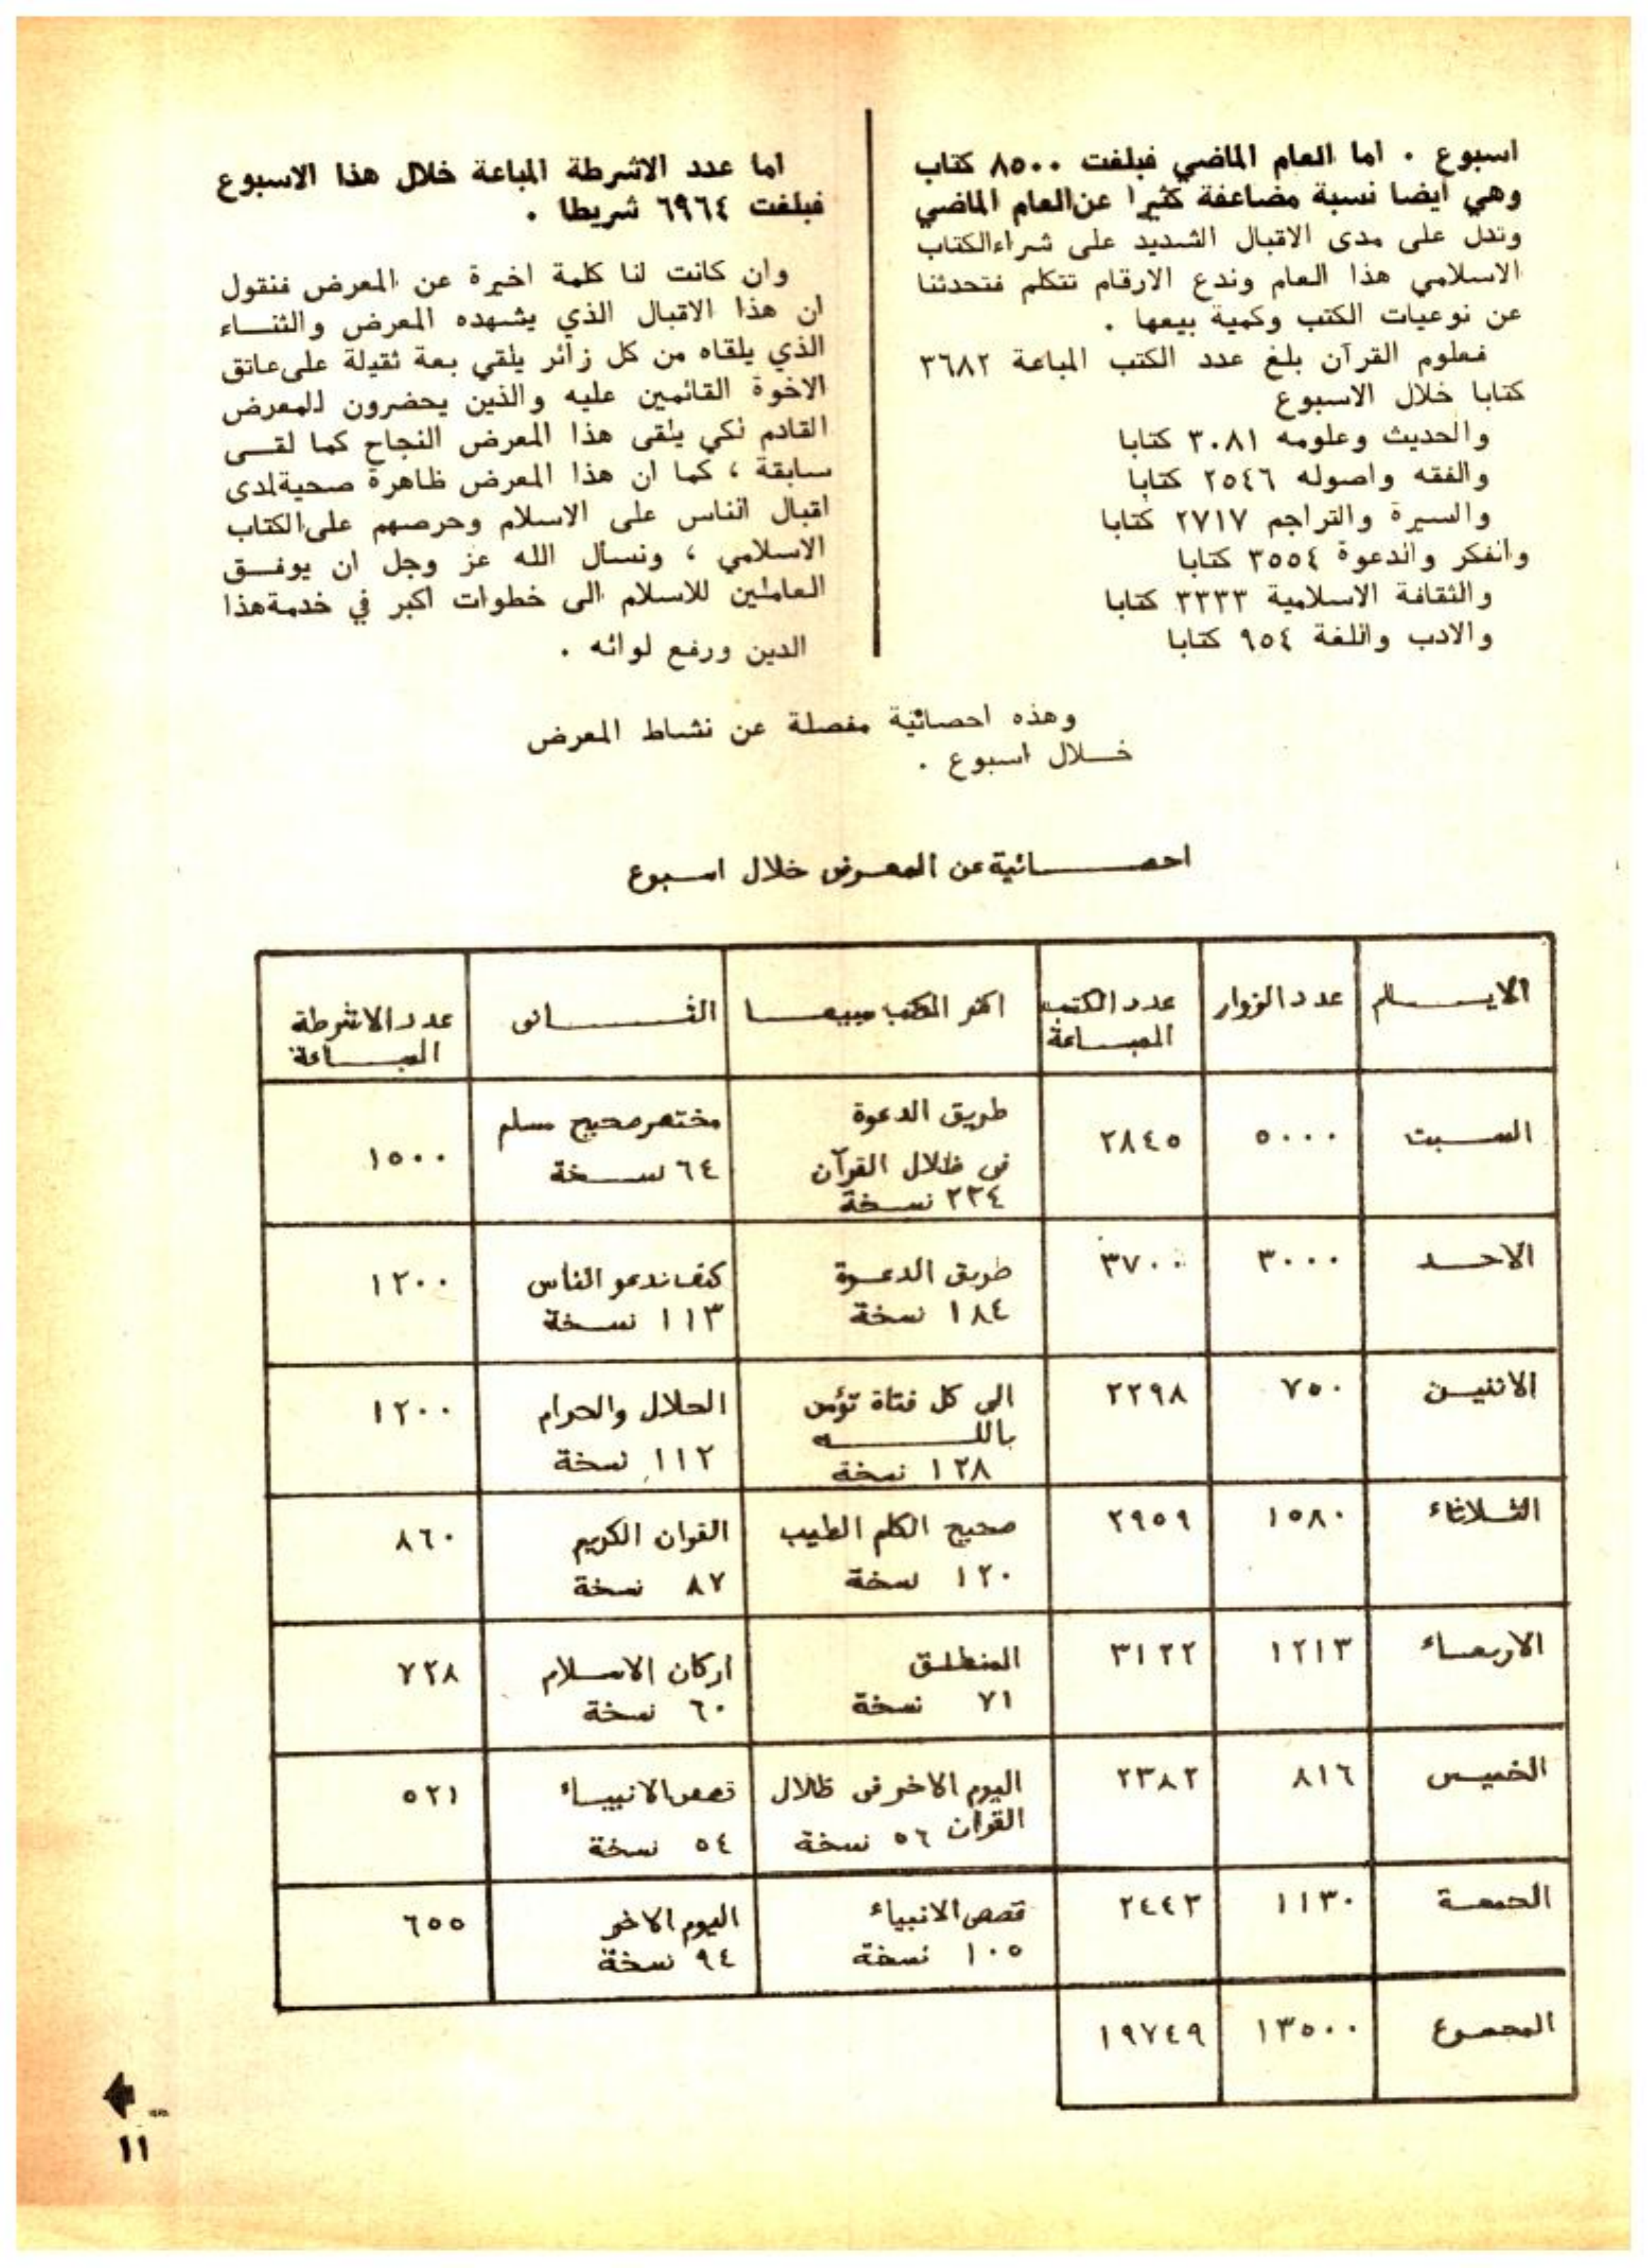 اسبوع . اما العام الماضي فبلغت ٨٥٠٠ كتاب
وهي ايضا نسبة مضاعفة كثيرا عن العام الماضي
وتدل على مدى الاقبال الشديد على شراء الكتاب
الاسلامي هذا العام وندع الارقام تتكلم فتحدثنا
عن نوعيات الكتب وكمية بيعها .
فعلوم القرآن بلغ عدد الكتب المباعة ٣٦٨٢
كتابا خلال الاسبوع
والحديث وعلومه ٣٠٨١ كتابا
والفقه واصوله ٢٥٤٦ كتابا
والسيرة والتراجم ٢٧١٧ كتابا
والفكر والدعوة ٣٥٥٤ كتابا
والثقافة الاسلامية ٣٣٣٣ كتابا
والادب واللغة ٩٥٤ كتابا
اما عدد الاشرطة المباعة خلال هذا الاسبوع
فبلغت ٦٩٦٤ شريطا .
وان كانت لنا كلمة اخيرة عن المعرض فنقول
ان هذا الاقبال الذي يشهده المعرض والثناء
الذي يلقاه من كل زائر يلقي بعة ثقيلة على عاتق
الاخوة القائمين عليه والذين يحضرون للمعرض
القادم لكي يلقى هذا المعرض النجاح كما لقى
سابقة ، كما ان هذا المعرض ظاهرة صحية لدى
اقبال الناس على الاسلام وحرصهم على الكتاب
الاسلامي ، ونسأل الله عز وجل ان يوفق
العاملين للاسلام الى خطوات اكبر في خدمة هذا
الدين ورفع لوائه .
وهذه احصائية مفصلة عن نشاط المعرض
خلال اسبوع .
احصائية عن المعرض خلال اسبوع
الايام عدد الزوار عدد الكتب المباعة اكثر الكتب مبيعا الثانى عدد الاشرطة المباعة
السبت ٥٠٠٠ ٢٨٤٥ طريق الدعوة فى ظلال القرآن ٢٣٤ نسخة مختصر صحيح مسلم ٦٤ نسخة ١٥٠٠
الاحد ٣٠٠٠ ٣٧٠٠ طريق الدعوة ١٨٤ نسخة كيف ندعو الناس ١١٣ نسخة ١٢٠٠
الاثنين ٧٥٠ ٢٢٩٨ الى كل فتاة تؤمن بالله ١٢٨ نسخة الحلال والحرام ١١٢ نسخة ١٢٠٠
الثلاثاء ١٥٨٠ ٢٩٥٩ صحيح الكلم الطيب ١٢٠ نسخة القران الكريم ٨٧ نسخة ٨٦٠
الاربعاء ١٢١٣ ٣١٢٢ المنطلق ٧١ نسخة اركان الاسلام ٦٠ نسخة ٧٢٨
الخميس ٨١٦ ٢٣٨٢ اليوم الاخر فى ظلال القران ٥٦ نسخة قصص الانبياء ٥٤ نسخة ٥٢١
الجمعة ١١٣٠ ٢٤٤٣ قصص الانبياء ١٠٥ نسخة اليوم الاخر ٩٤ نسخة ٦٥٥
المجموع ١٣٥٠٠ ١٩٧٤٩
١١